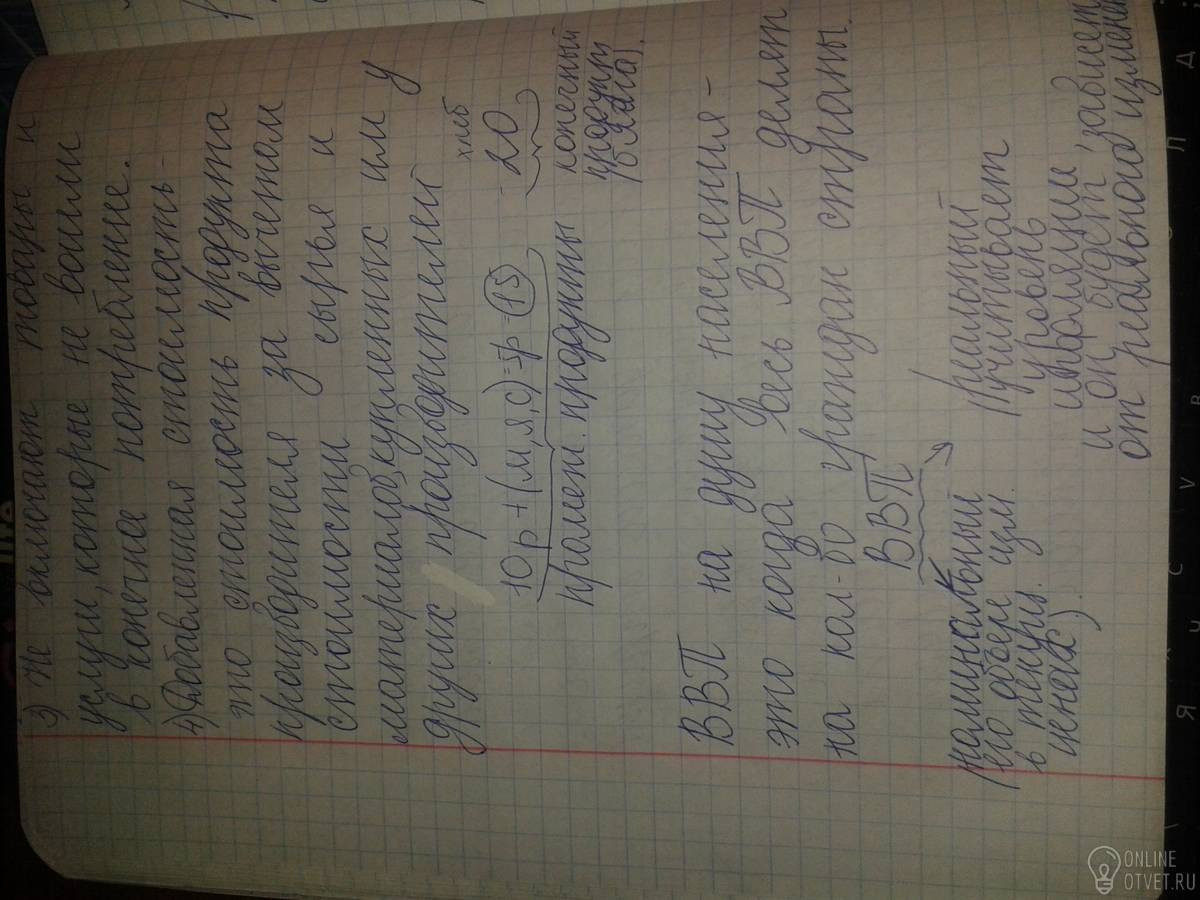 3) Не включают товары и
услуги, которые не вошли
в конечное потребление.
4) Добавленная стоимость -
это стоимость продукта
производителя за вычетом
стоимости сырья и
материалов купленных им у
других производителей
хлеб
10р + (м, я, с) = 5р - 15 - 20
промеж. продукты
конечный
продукт
ВВП на душу населения -
это когда весь ВВП делят
на кол-во граждан страны.
ВВП
номинальный
(его объем изм.
в текущих
ценах)
реальный
(учитывает
уровень
инфляции,
и он будет зависеть
от реального измене
ONLINE
OTVET.RU